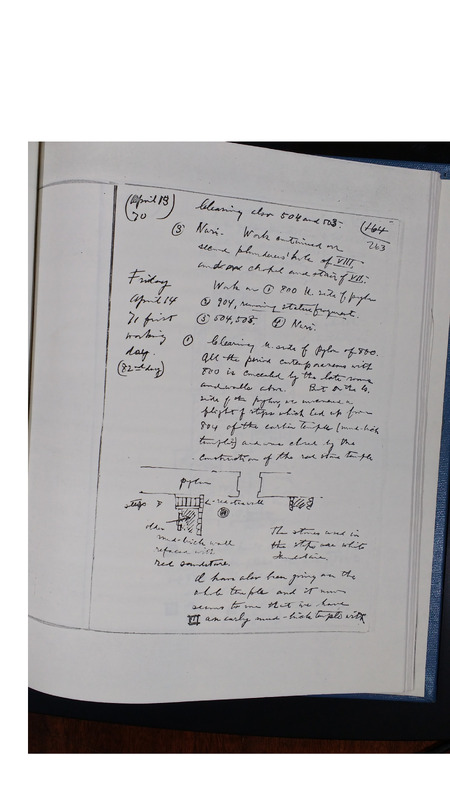 (April 13) Clearing door 504 and 503. (164
70 263
③ Nuri. Work continued on
second plunderers' hole of VIII.
and on chapel and stairs of VII.
Friday Work on ① 800 N. side of pylon
April 14 ② 904, removing statue fragments.
71 first ③ 504, 503. ④ Nuri.
working ① Clearing N. side of pylon of 800.
day. All the period contemporaneous with
(82nd day) 800 is concealed by the late rooms
and walls above. But on the N.
side of the pylon, we uncovered a
flight of steps which led up from
804 of the earlier temple (mud-brick
temple) and was closed by the
construction of the red stone temple
pylon
steps red stone wall
older The stones used in
mud-brick wall the steps are white
refaced with sandstone.
red sandstone.
I have also been going over the
whole temple and it now
seems to me that we have
III an early mud-brick temple with